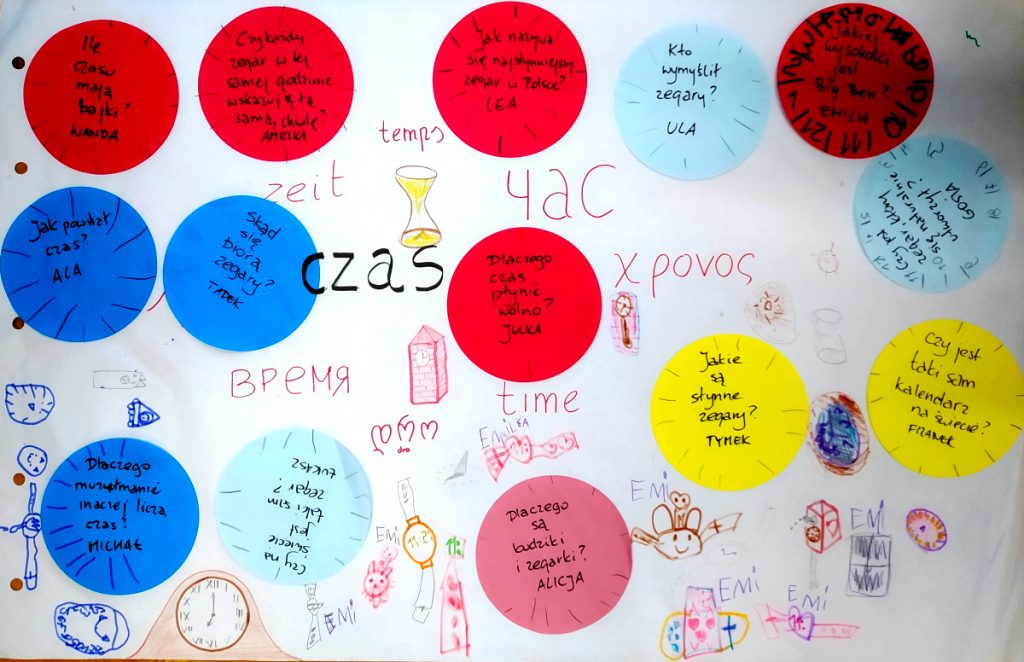 Ile
czasu
mają
bajki?
WANDA
Czy każdy
zegar w tej
samej godzinie
wskazuje tą
samą chwilę?
Jak nazywa
się najsłynniejszy
zegar w Polsce?
LEA
Kto
wymyślił
zegary?
ULA
Jakiej
wysokości
jest
Big Ben?
EMILIA
11 10
temps
zeit
час
Czy jest
zegar, który
się naturalnie
utworzył?
GOSIA
Jak powstał
czas?
ALA
Skąd
się
biorą
zegary?
TADEK
czas
Dlaczego
czas
płynie
wolno?
JULKA
χρονος
время
time
Jakie
są
słynne
zegary?
TYMEK
Czy jest
taki sam
kalendarz
na świecie?
FRANEK
დრო
dro
EMILKA
Dlaczego
muzułmanie
inaczej liczą
czas?
MICHAŁ
Czy na
świecie
jest
taki sam
zegar?
ŁUKASZ
Dlaczego
są
budziki
i zegarki?
ALICJA
EMI
EMI
EMI
EMI
EMI
EMI
XII